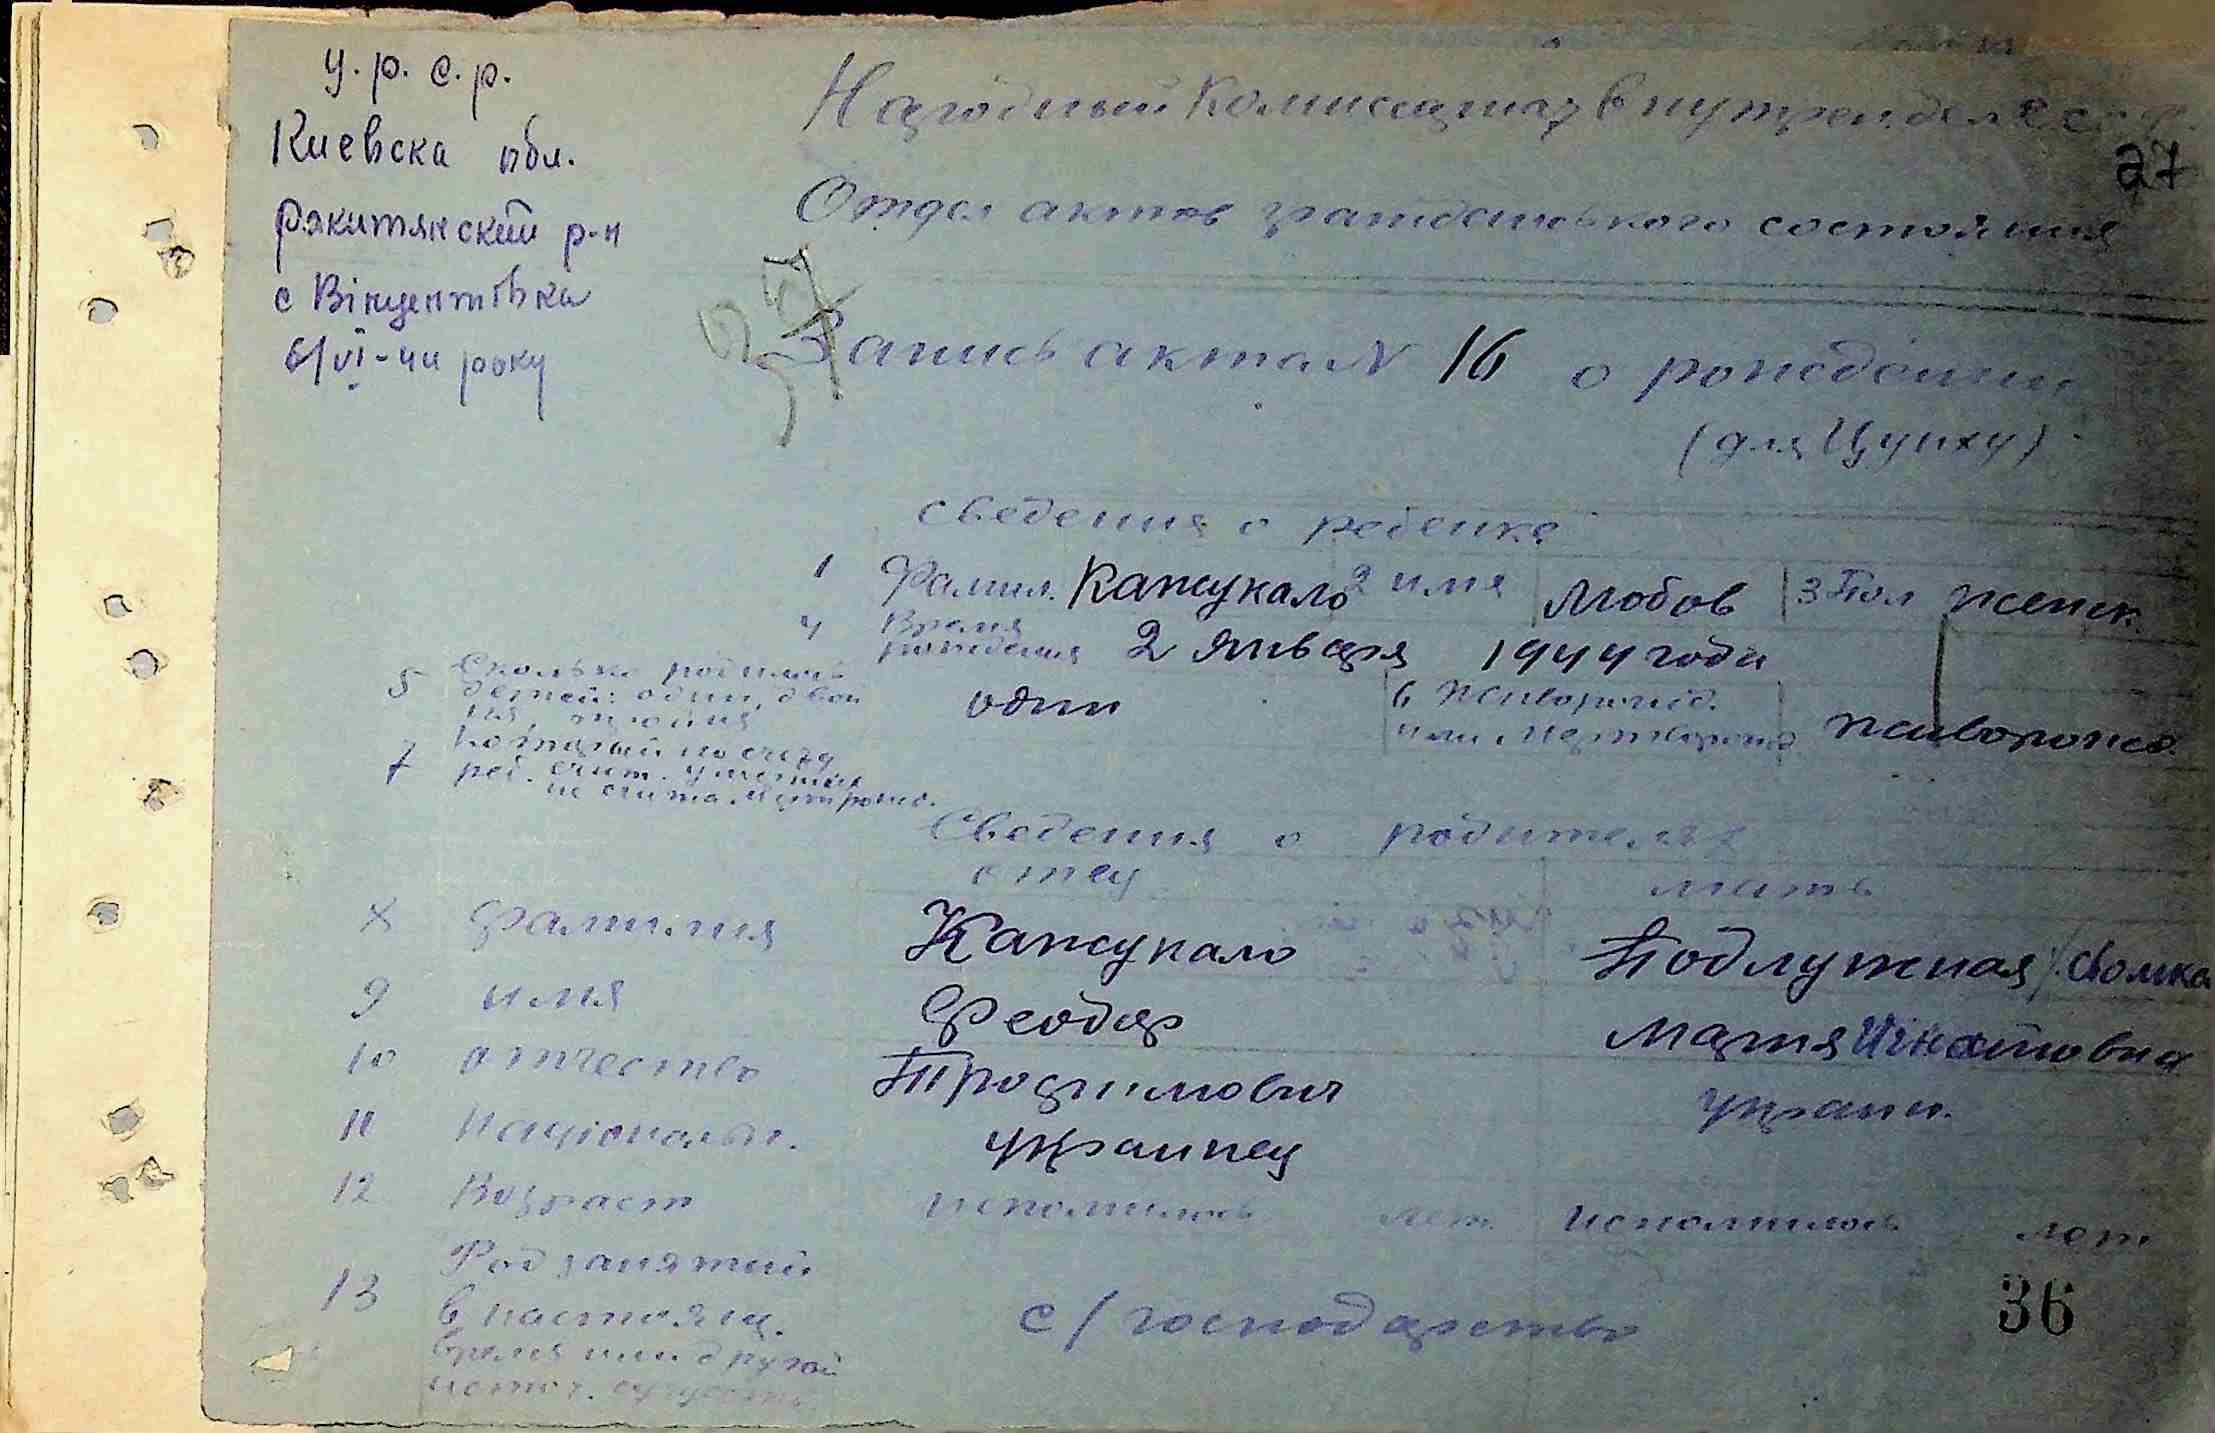 У.р.с.р.
Киевска обл.
Ракитянский р-н
с Вінцентівка
6/VI-44 року
Народный Комиссариат внутрен. дел СССР.
27
Отдел актов гражданського состояния
Запись акта N 16 о рождении
(для Цунху)
Сведения о ребенке
1 Фамил. Кажукало 2 имя Любов 3 Пол женск.
4 Время рождения 2 Января 1944 года
5 Сколько родилось детей: один, двой ня, тройня один 6 Живорожд. или мертворожд. живорожд.
7 Который по счету реб. счит. умерших не счита. мертрожд.
Сведения о родителях
отец мать
8 Фамилия Кажукало Подлужная
9 имя Феодор Мария Игнатовна
10 отчество Трофимович
11 Націоналън. украинец украин.
12 Возраст исполнилось лет исполнилось лет
13 Род занятий в настоящ. время или другой источ. с/господарство
36